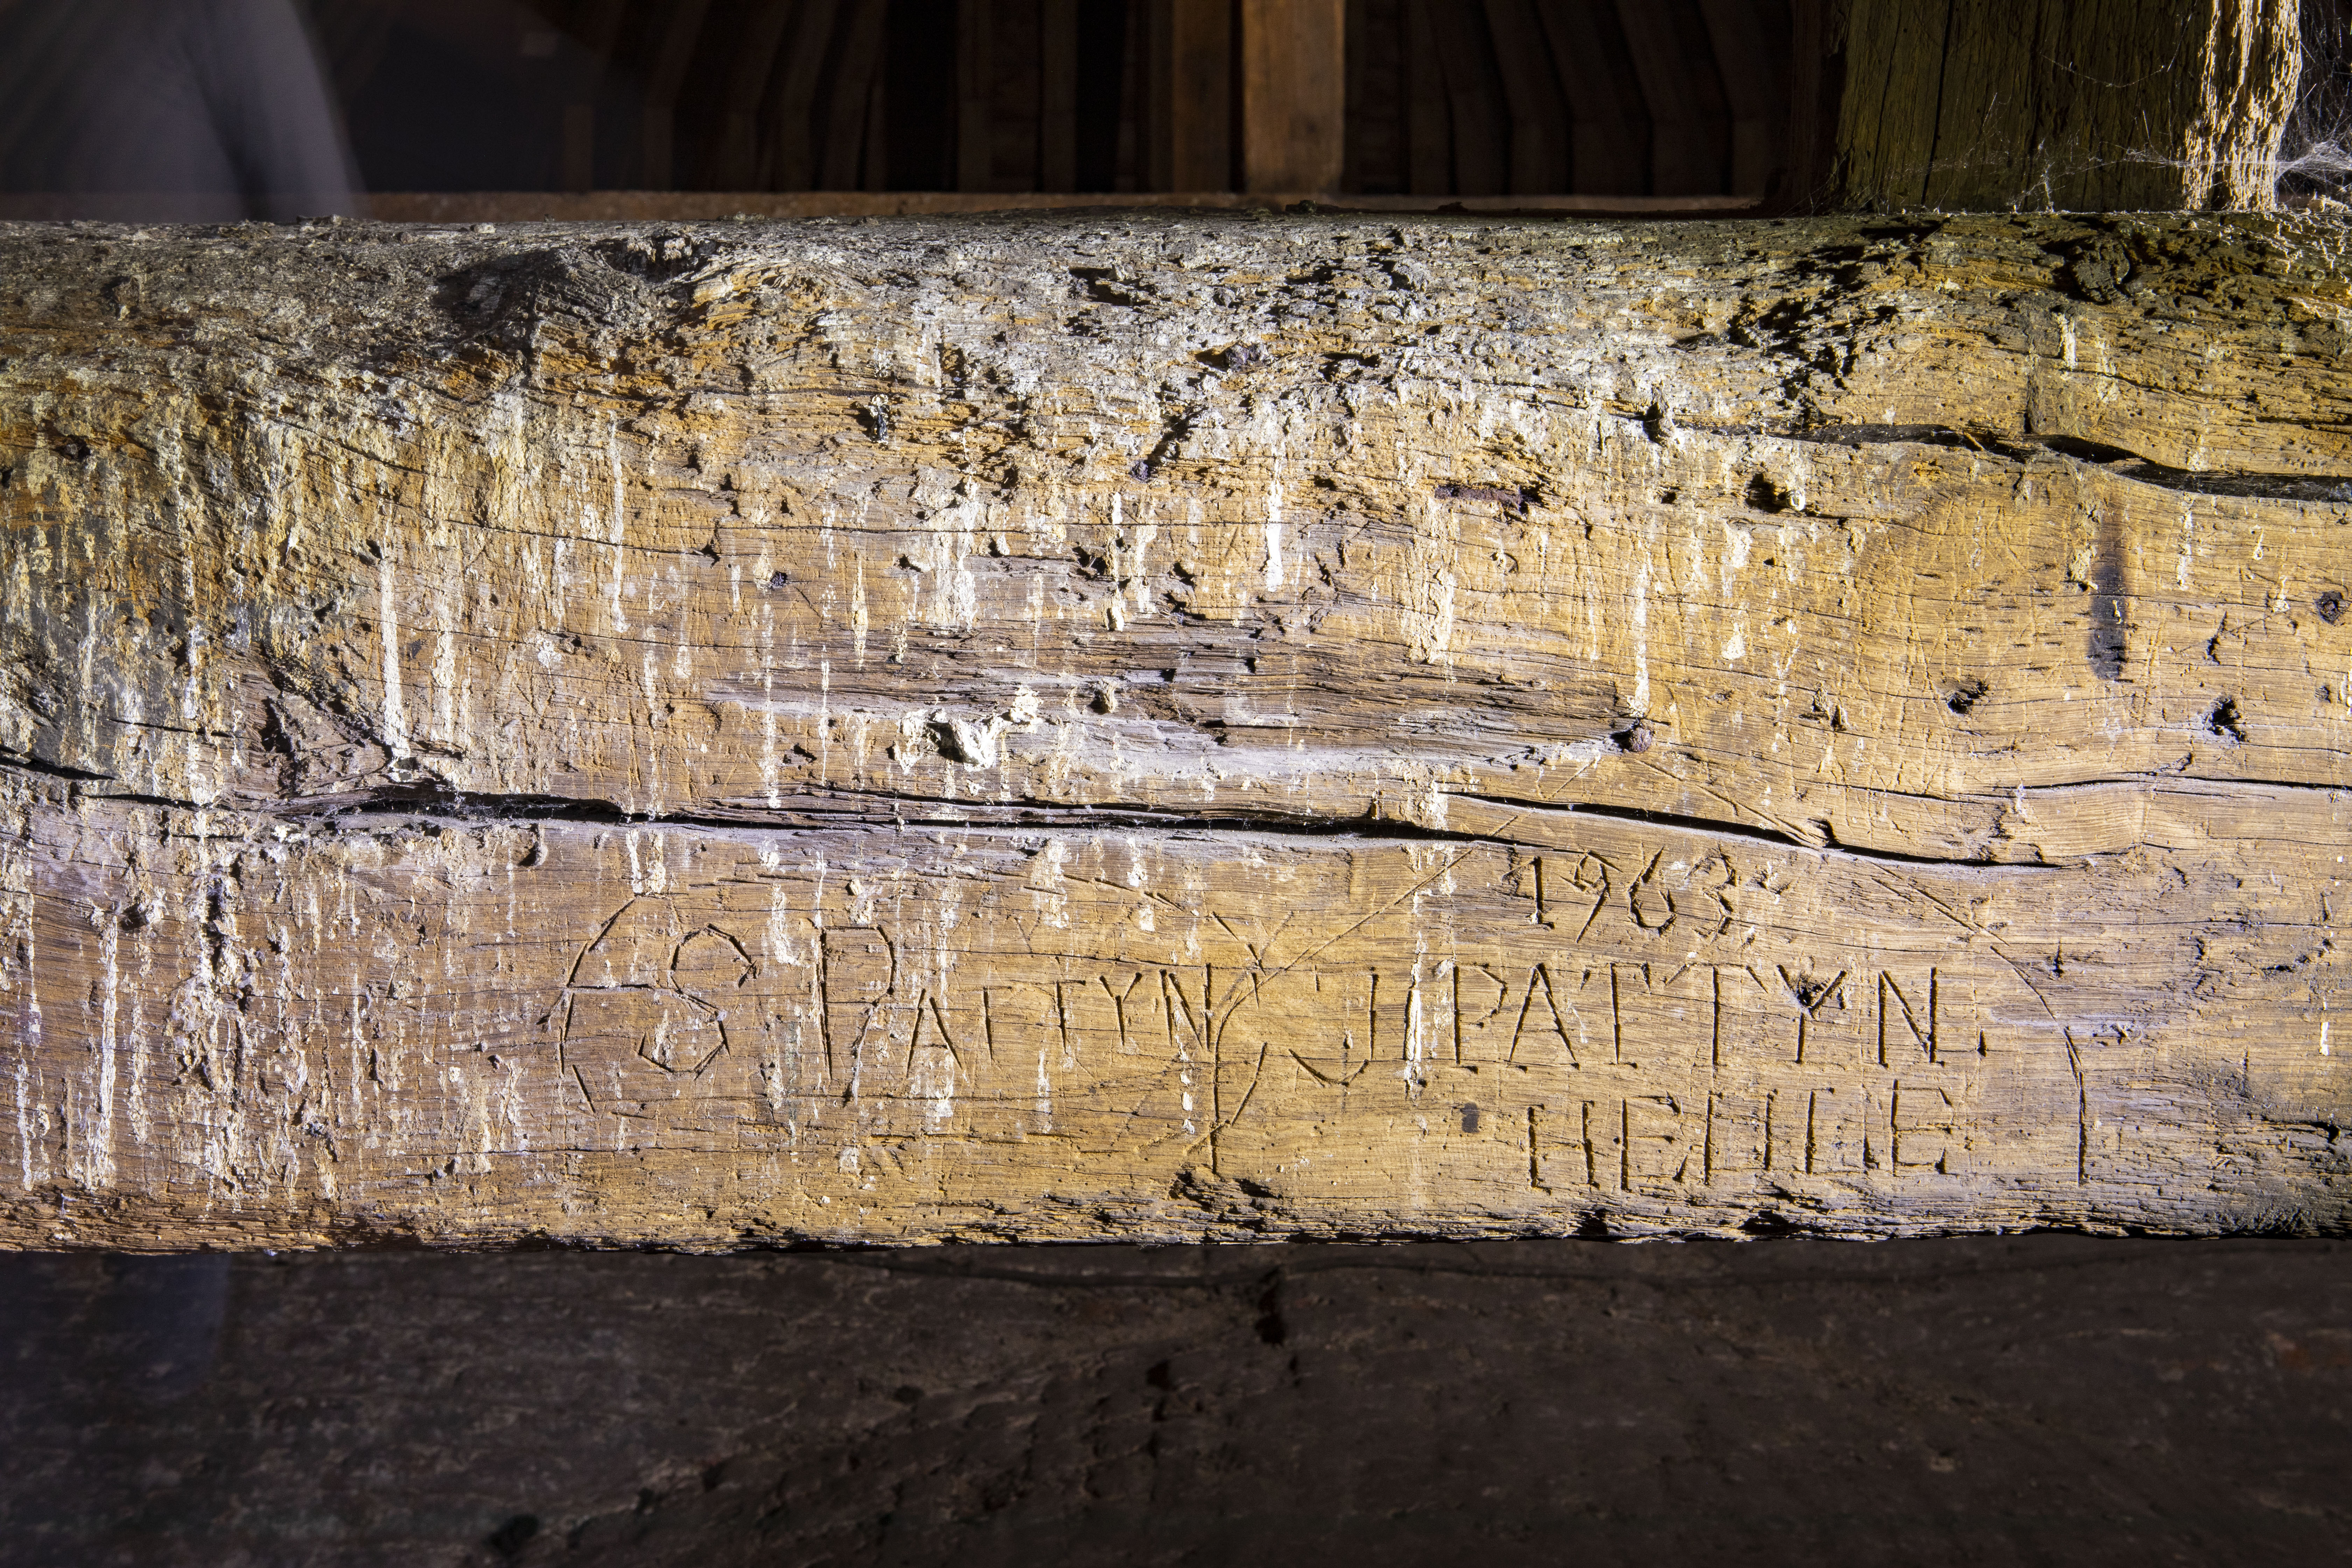 1963
S. PATTYN J. PATTYN.
HEULE